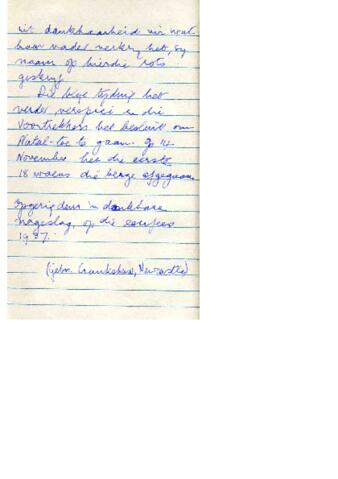 uit dankbaarheid vir wat
haar vader verkry het, sy
naam op hierdie rots
geskryf.
Die blye tyding het
verder versprei en die
Voortrekkers het besluit om
Natal-toe te gaan. Op 14
November het die eerste
18 waens die berge afgegaan.
Opgerig deur 'n dankbare
nageslag op die eeufees
1937.
(Crankshaw, Newcastle)